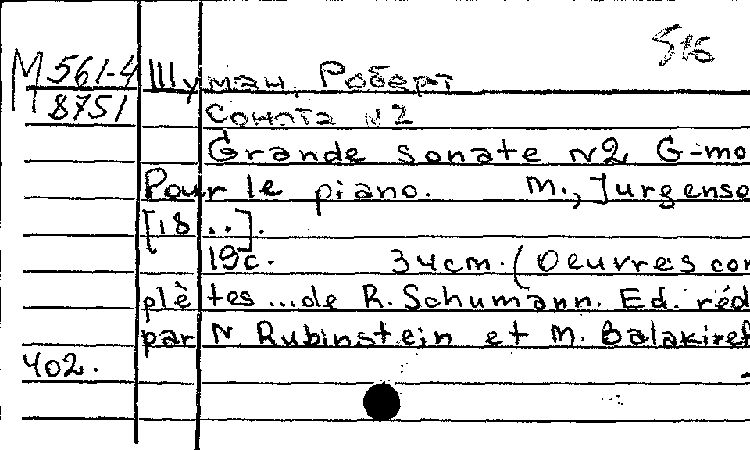 516
М 561-4 Шуман, Роберт
8751 Соната N2
Grande sonate N2 G-mo
Pour le piano. M., Jurgenso
[18..].
19с. 34cm. (Oeuvres com
plètes...de R. Schumann. Ed. réd
par N. Rubinstein et M. Balakiref
402.